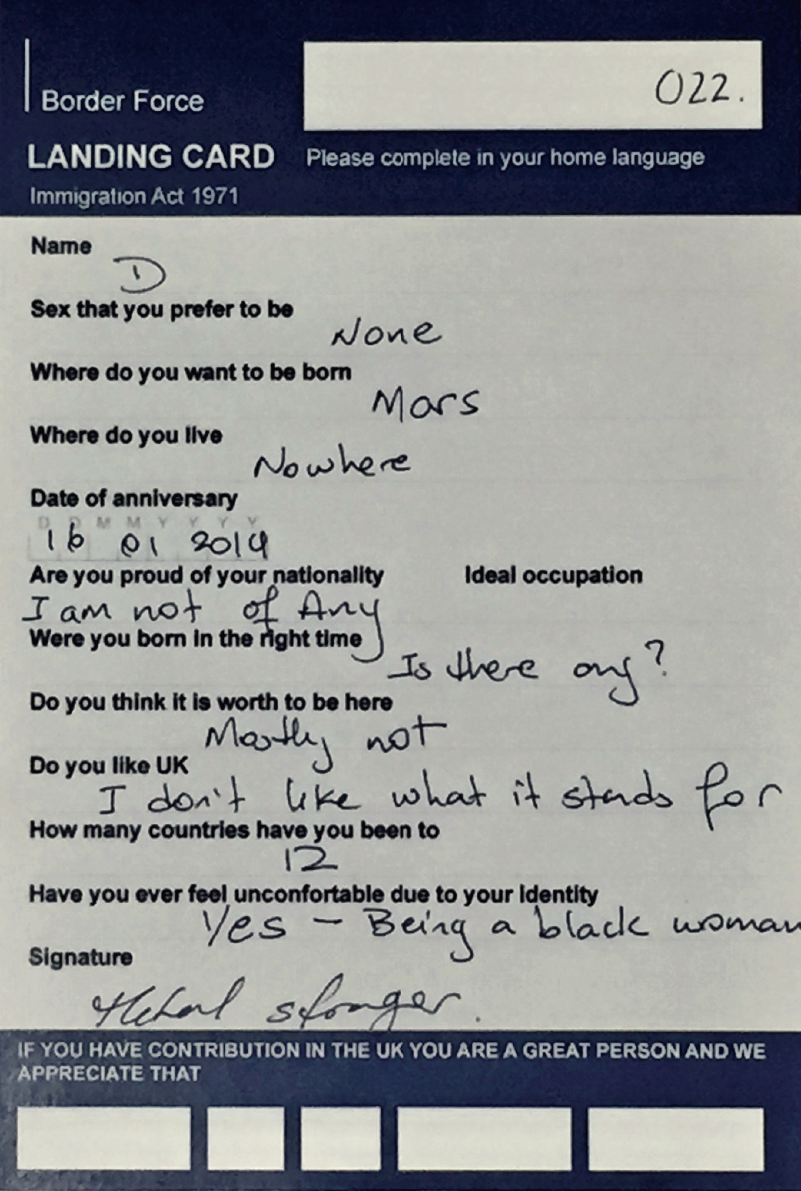 022.
Border Force
LANDING CARD Please complete in your home language
Immigration Act 1971
Name
D
Sex that you prefer to be
None
Where do you want to be born
Mars
Where do you live
Nowhere
Date of anniversary
D D M M Y Y Y Y
16 01 2019
Are you proud of your nationality Ideal occupation
I am not of Any
Were you born in the right time
Is there any?
Do you think it is worth to be here
Mostly not
Do you like UK
I don't like what it stands for
How many countries have you been to
12
Have you ever feel unconfortable due to your Identity
Yes – Being a black woman
Signature
IF YOU HAVE CONTRIBUTION IN THE UK YOU ARE A GREAT PERSON AND WE
APPRECIATE THAT